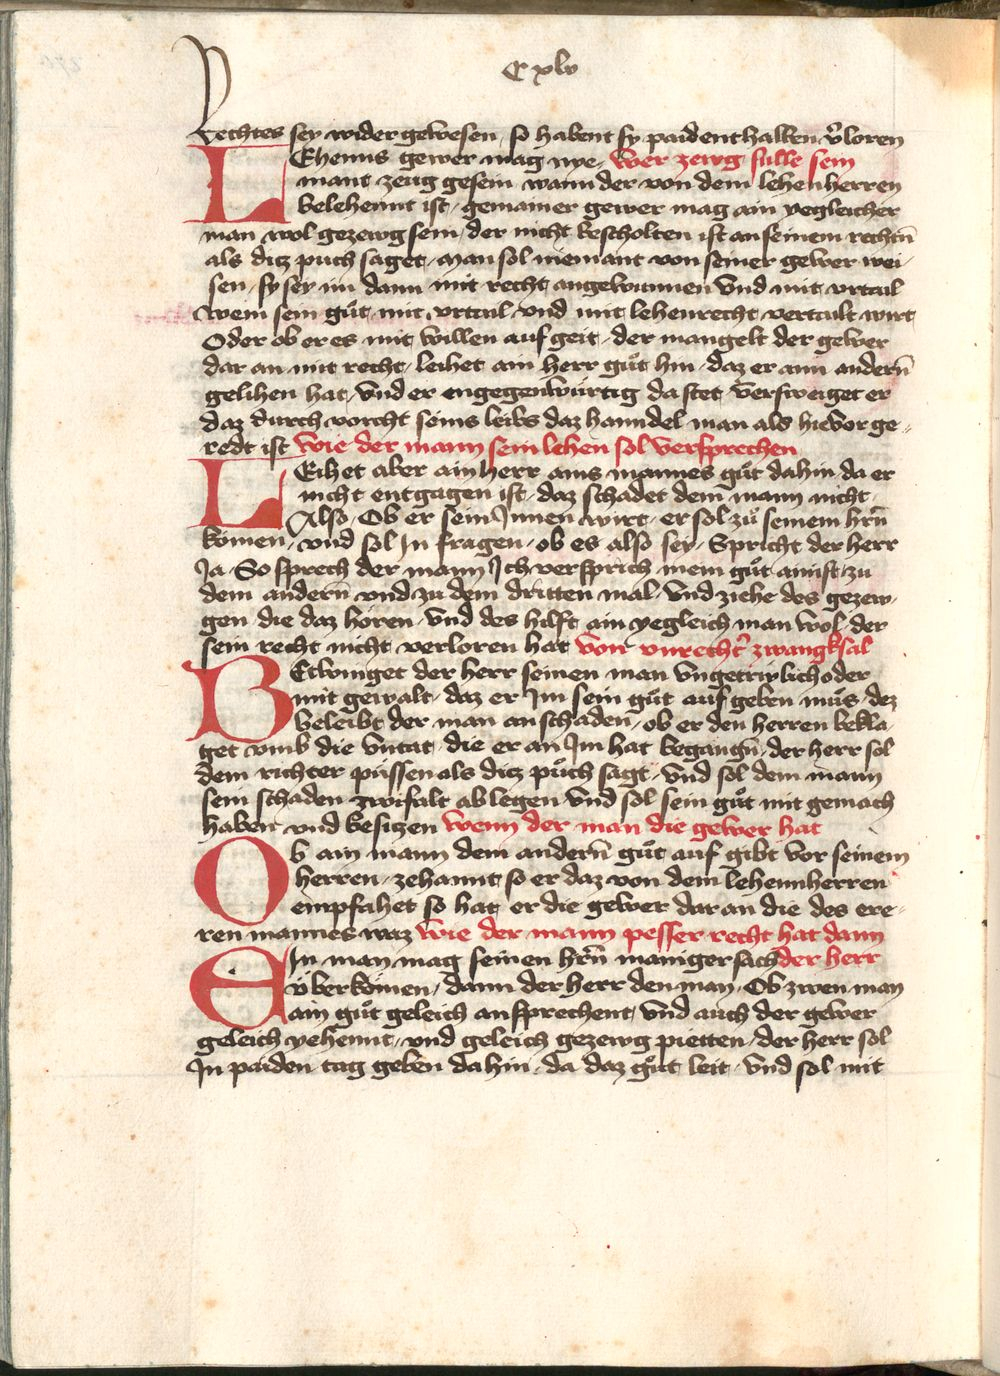 C xlv
Rechtes sey wider gewesen / so habent sy paidenthalben v̾loren
LEhenns gewer mag nye / wer zewg sulle sein
mant zeug gesein wann der von dem lehenherren
belehennt ist / gemainer gewer mag ain yegleicher
man wol gezewg sein / der nicht bescholten ist an seinem rechtn̄
als ditz puch saget / Man sol niemant von seiner gewer wei-
sen / sy sey im dann mit recht angewunnen vnd mit vrtail
Wem sein gůt mit vrtail vnd mit lehenrecht vertailt wirt
Oder ob er es mit willen auf geit / der mangelt der gewer
dar an mit recht / leihet ain herr gůt hin / daz er ann andern̄
gelihen hat / vnd er engegenwürtig da stet / versweiget er
daz durch vorcht seins leibs daz hanndel man als hie vor ge-
redt ist wie der mann sein lehen sol versprechen
LEihet aber ain herr ains mannes gůt dahin da er
nicht entgagen ist / daz schadet dem mann nicht /
Also / Ob er sein Innen wirt / er sol zů seinem hrn̄
komen / vnd sol In fragen / ob es also sey / Spricht der herr
Ja / So sprech der mann Ich versprich mein gůt ainist zu
dem andern̄ vnd zu dem dritten mal / vnd ziehe des gezew-
gen / die daz hören / vnd des hilft ain yegleich man wol / der
sein recht nicht verloren hat Von vnrecht̾ zwangksal
BEtwinget der herr seinen man vngetriwlich oder
mit gewalt / daz er Im sein gůt auf geben můs / dez
beleibt der man an schaden / ob er den herren bekla-
get vmb die vntat / die er an Im hat begangn̄ / der herr sol
dem richter püssen als ditz půch sagt / vnd sol dem mann
sein schaden zwifalt ab legen vnd sol sein gůt mit gemach
haben vnd besitzen wenn der man die gewer hat
Ob ain mann dem andern̄ gůt auf gibt vor seinem
herren / zehannt so er daz von dem lehennherren
empfahet so hat er die gewer dar an die des ere-
ren mannes waz wie der mann pesser recht hat dann
EIn man mag seinen hrn̄ maniger sach der herr
überkomen / dann der herr den man / Ob zwen man
ain gůt geleich an sprechent / vnd auch der gewer
geleich yehennt / vnd geleich gezewg pietten / der herr sol
In paiden tag geben dahin / da daz gůt leit / vnd sol mit